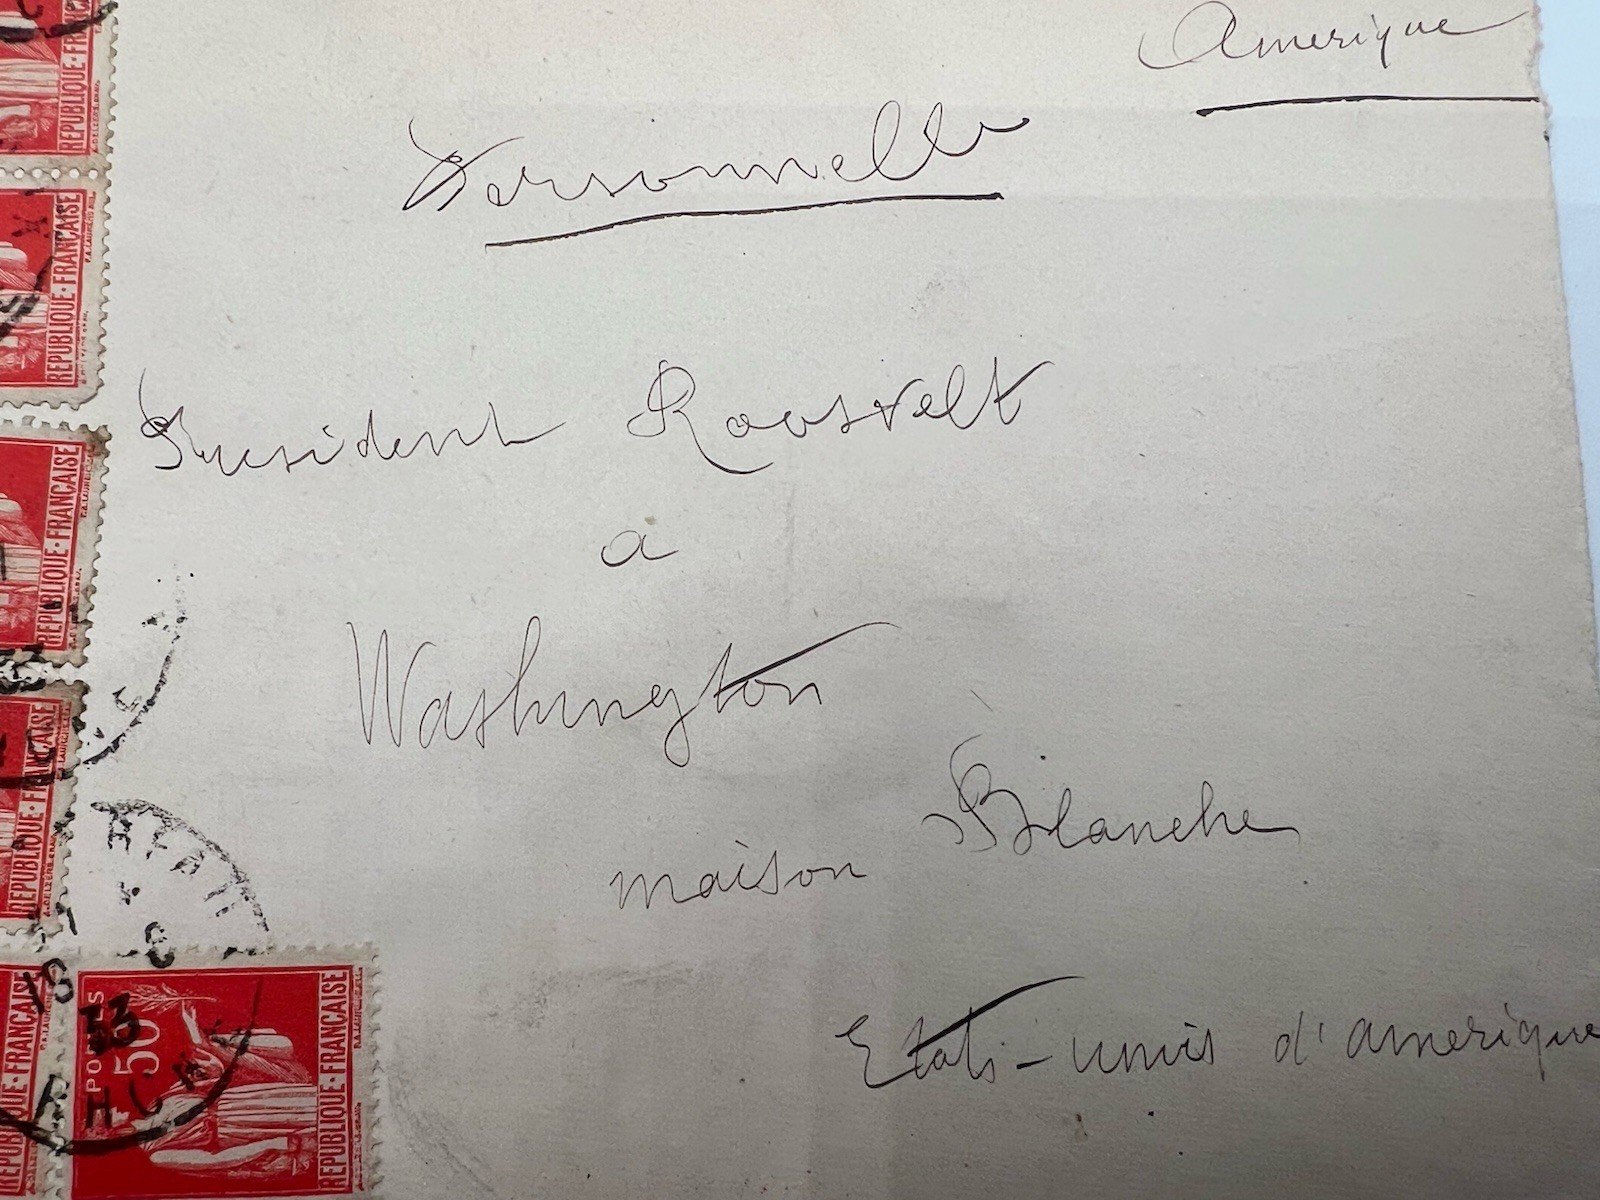 Amerique
Personnelle
President Roosvelt
à
Washington
maison Blanche
Etats-unis d'amerique
REPUBLIQUE·FRANÇAISE
REPUBLIQUE·FRANÇAISE
REPUBLIQUE·FRANÇAISE
REPUBLIQUE·FRANÇAISE
REPUBLIQUE·FRANÇAISE
POSTES
50
REPUBLIQUE·FRANÇAISE
18
-8
33